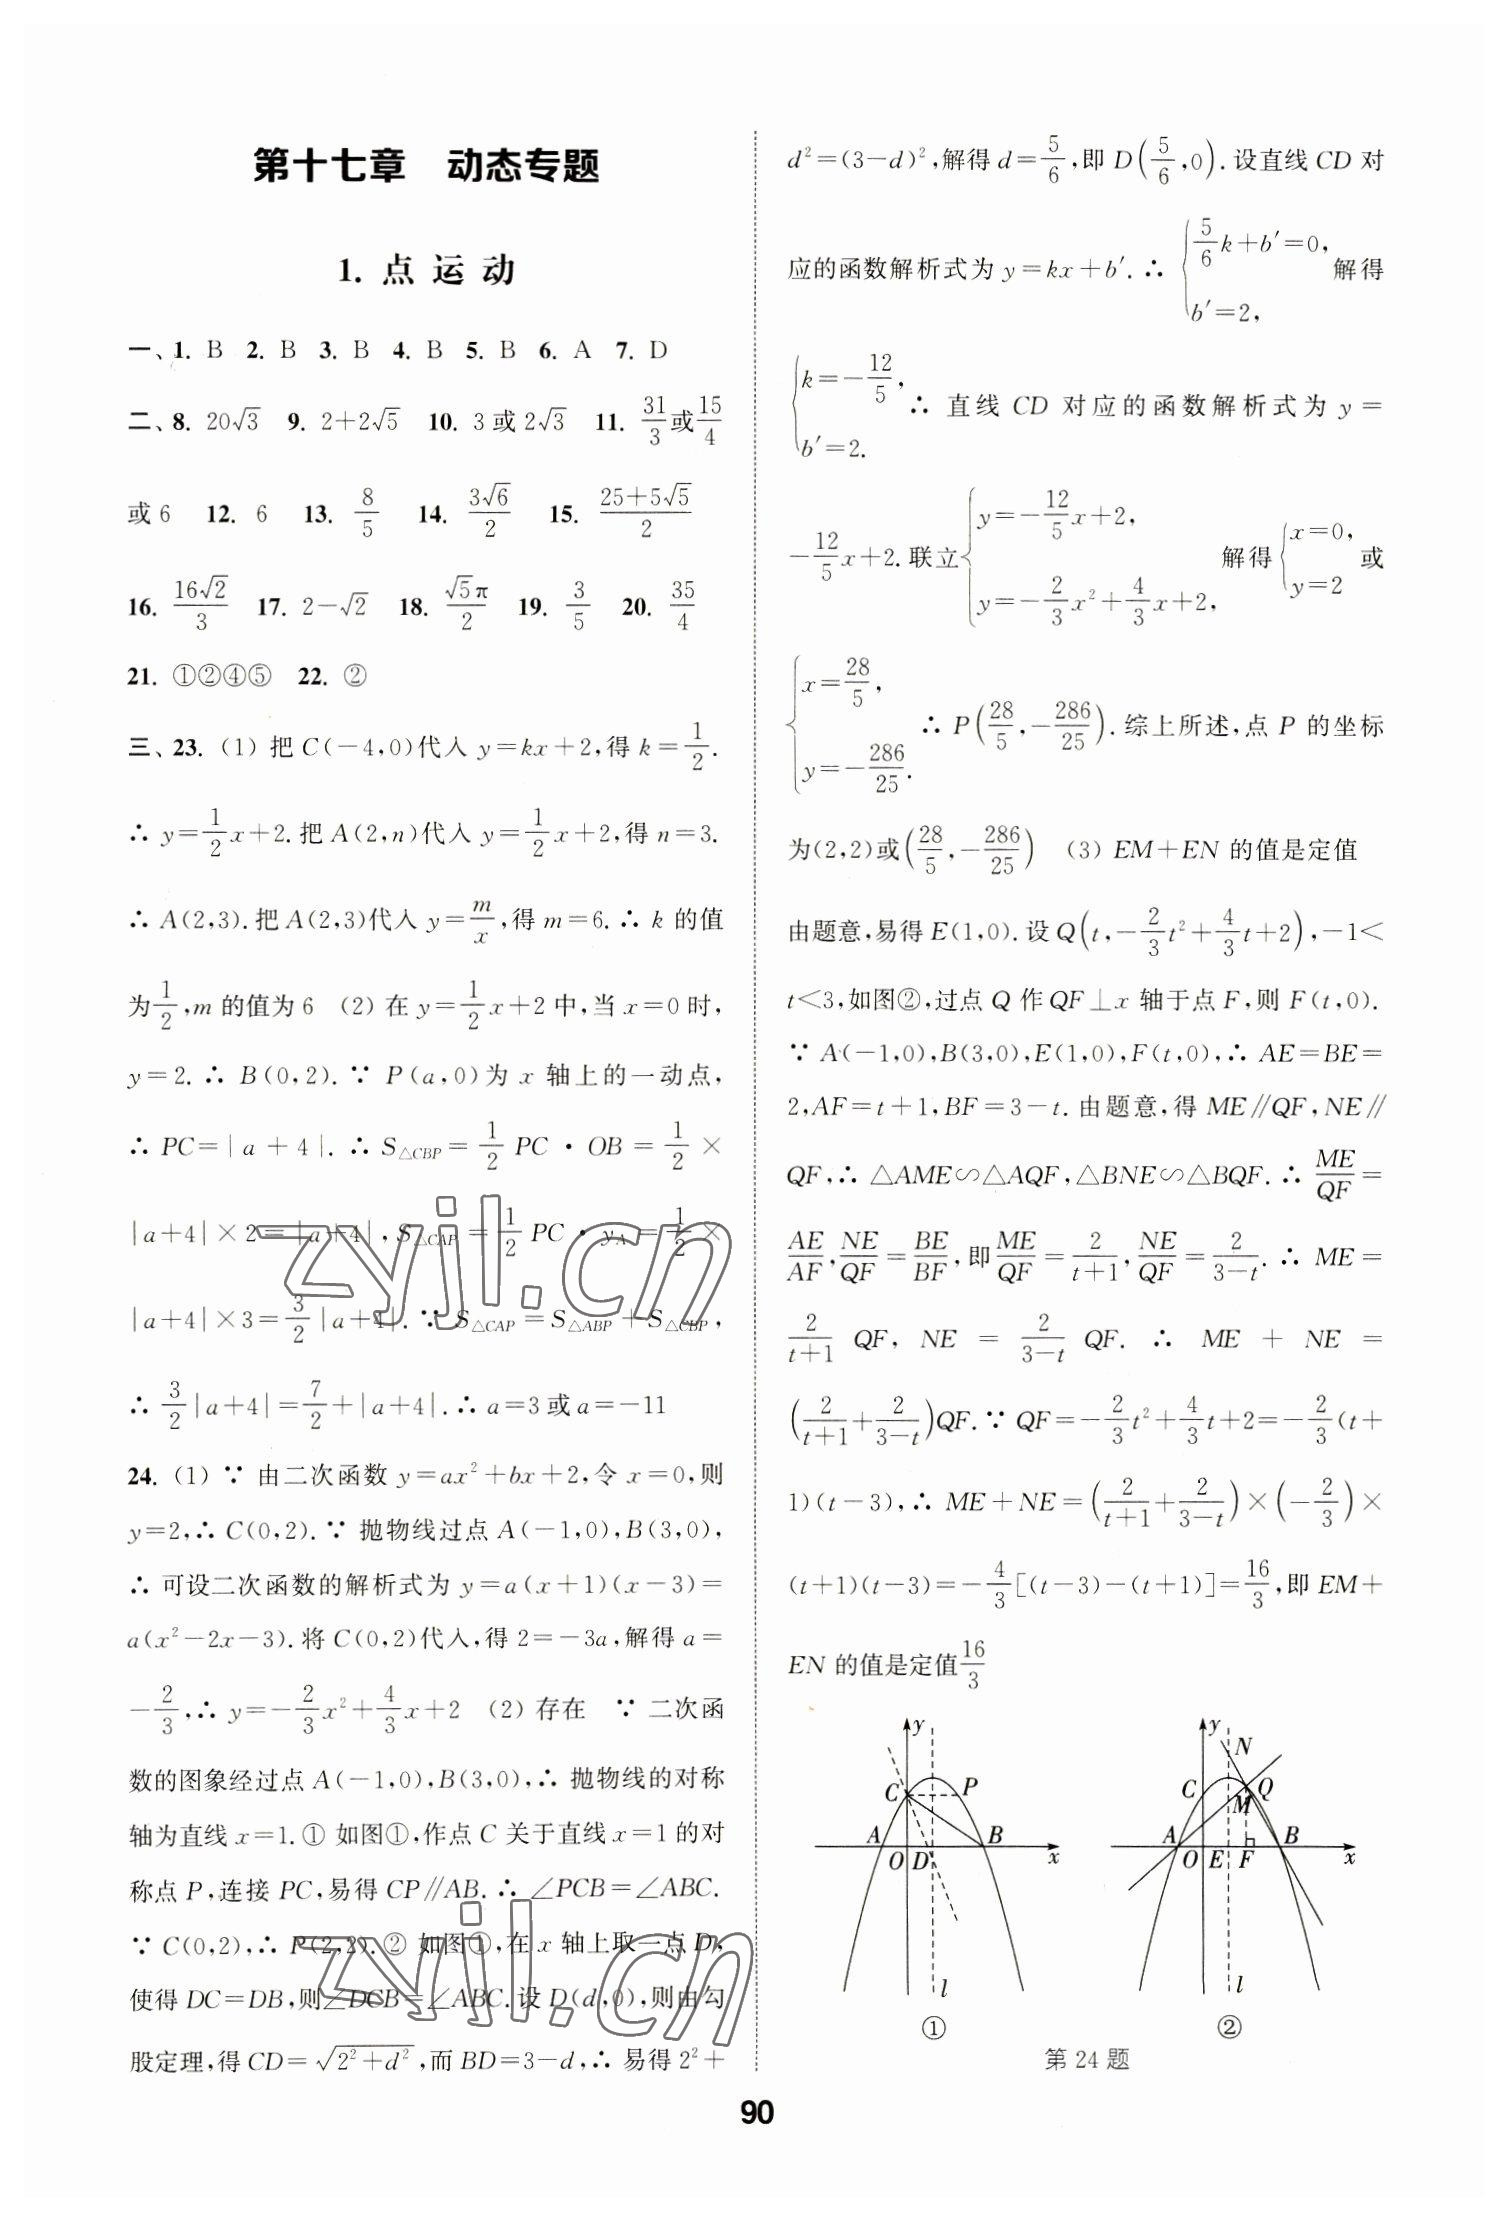 第十七章 动态专题
1. 点 运 动
一、1. B 2. B 3. B 4. B 5. B 6. A 7. D
二、8. 20√3 9. 2+2√5 10. 3 或 2√3 11. 31/3 或 15/4
或 6 12. 6 13. 8/5 14. 3√6/2 15. (25+5√5)/2
16. 16√2/3 17. 2-√2 18. √5π/2 19. 3/5 20. 35/4
21. ①②④⑤ 22. ②
三、23. (1) 把 C(-4,0)代入 y=kx+2,得 k=1/2.
∴ y=1/2x+2.把 A(2,n)代入 y=1/2x+2,得 n=3.
∴ A(2,3).把 A(2,3)代入 y=m/x,得 m=6.∴ k 的值
为1/2,m 的值为 6 (2) 在 y=1/2x+2 中,当 x=0 时,
y=2.∴ B(0,2).∵ P(a,0)为 x 轴上的一动点,
∴ PC=|a+4|.∴ S△CBP=1/2 PC·OB=1/2×
|a+4|×2=|a+4|,S△CAP=1/2 PC·yA=1/2×
|a+4|×3=3/2|a+4|.∵ S△CAP=S△ABP+S△CBP,
∴ 3/2|a+4|=7/2+|a+4|.∴ a=3 或 a=-11
24. (1) ∵ 由二次函数 y=ax²+bx+2,令 x=0,则
y=2,∴ C(0,2).∵ 抛物线过点 A(-1,0),B(3,0),
∴ 可设二次函数的解析式为 y=a(x+1)(x-3)=
a(x²-2x-3).将 C(0,2)代入,得 2=-3a,解得 a=
-2/3,∴ y=-2/3x²+4/3x+2 (2) 存在 ∵ 二次函
数的图象经过点 A(-1,0),B(3,0),∴ 抛物线的对称
轴为直线 x=1.① 如图①,作点 C 关于直线 x=1 的对
称点 P,连接 PC,易得 CP∥AB.∴ ∠PCB=∠ABC.
∵ C(0,2),∴ P(2,2).② 如图①,在 x 轴上取一点 D,
使得 DC=DB,则∠DCB=∠ABC.设 D(d,0),则由勾
股定理,得 CD=√(2²+d²),而 BD=3-d,∴ 易得 2²+
d²=(3-d)²,解得 d=5/6,即 D(5/6,0).设直线 CD 对
应的函数解析式为 y=kx+b′.∴ {5/6k+b′=0, b′=2, 解得
{k=-12/5, b′=2. ∴ 直线 CD 对应的函数解析式为 y=
-12/5x+2.联立{y=-12/5x+2, y=-2/3x²+4/3x+2, 解得{x=0, y=2 或
{x=28/5, y=-286/25. ∴ P(28/5,-286/25).综上所述,点 P 的坐标
为(2,2)或(28/5,-286/25) (3) EM+EN 的值是定值
由题意,易得 E(1,0).设 Q(t,-2/3t²+4/3t+2),-1<
t<3,如图②,过点 Q 作 QF⊥x 轴于点 F,则 F(t,0).
∵ A(-1,0),B(3,0),E(1,0),F(t,0),∴ AE=BE=
2,AF=t+1,BF=3-t.由题意,得 ME∥QF,NE∥
QF,∴ △AME∽△AQF,△BNE∽△BQF.∴ ME/QF=
AE/AF,NE/QF=BE/BF,即ME/QF=2/(t+1),NE/QF=2/(3-t).∴ ME=
2/(t+1) QF, NE = 2/(3-t) QF. ∴ ME + NE =
(2/(t+1)+2/(3-t))QF.∵ QF=-2/3t²+4/3t+2=-2/3(t+
1)(t-3),∴ ME+NE=(2/(t+1)+2/(3-t))×(-2/3)×
(t+1)(t-3)=-4/3[(t-3)-(t+1)]=16/3,即 EM+
EN 的值是定值16/3
y
C
P
A
O
D
B
x
l
①
y
N
C
Q
M
A
O
E
F
B
x
l
②
第 24 题
90
zyjl.cn
zyjl.cn